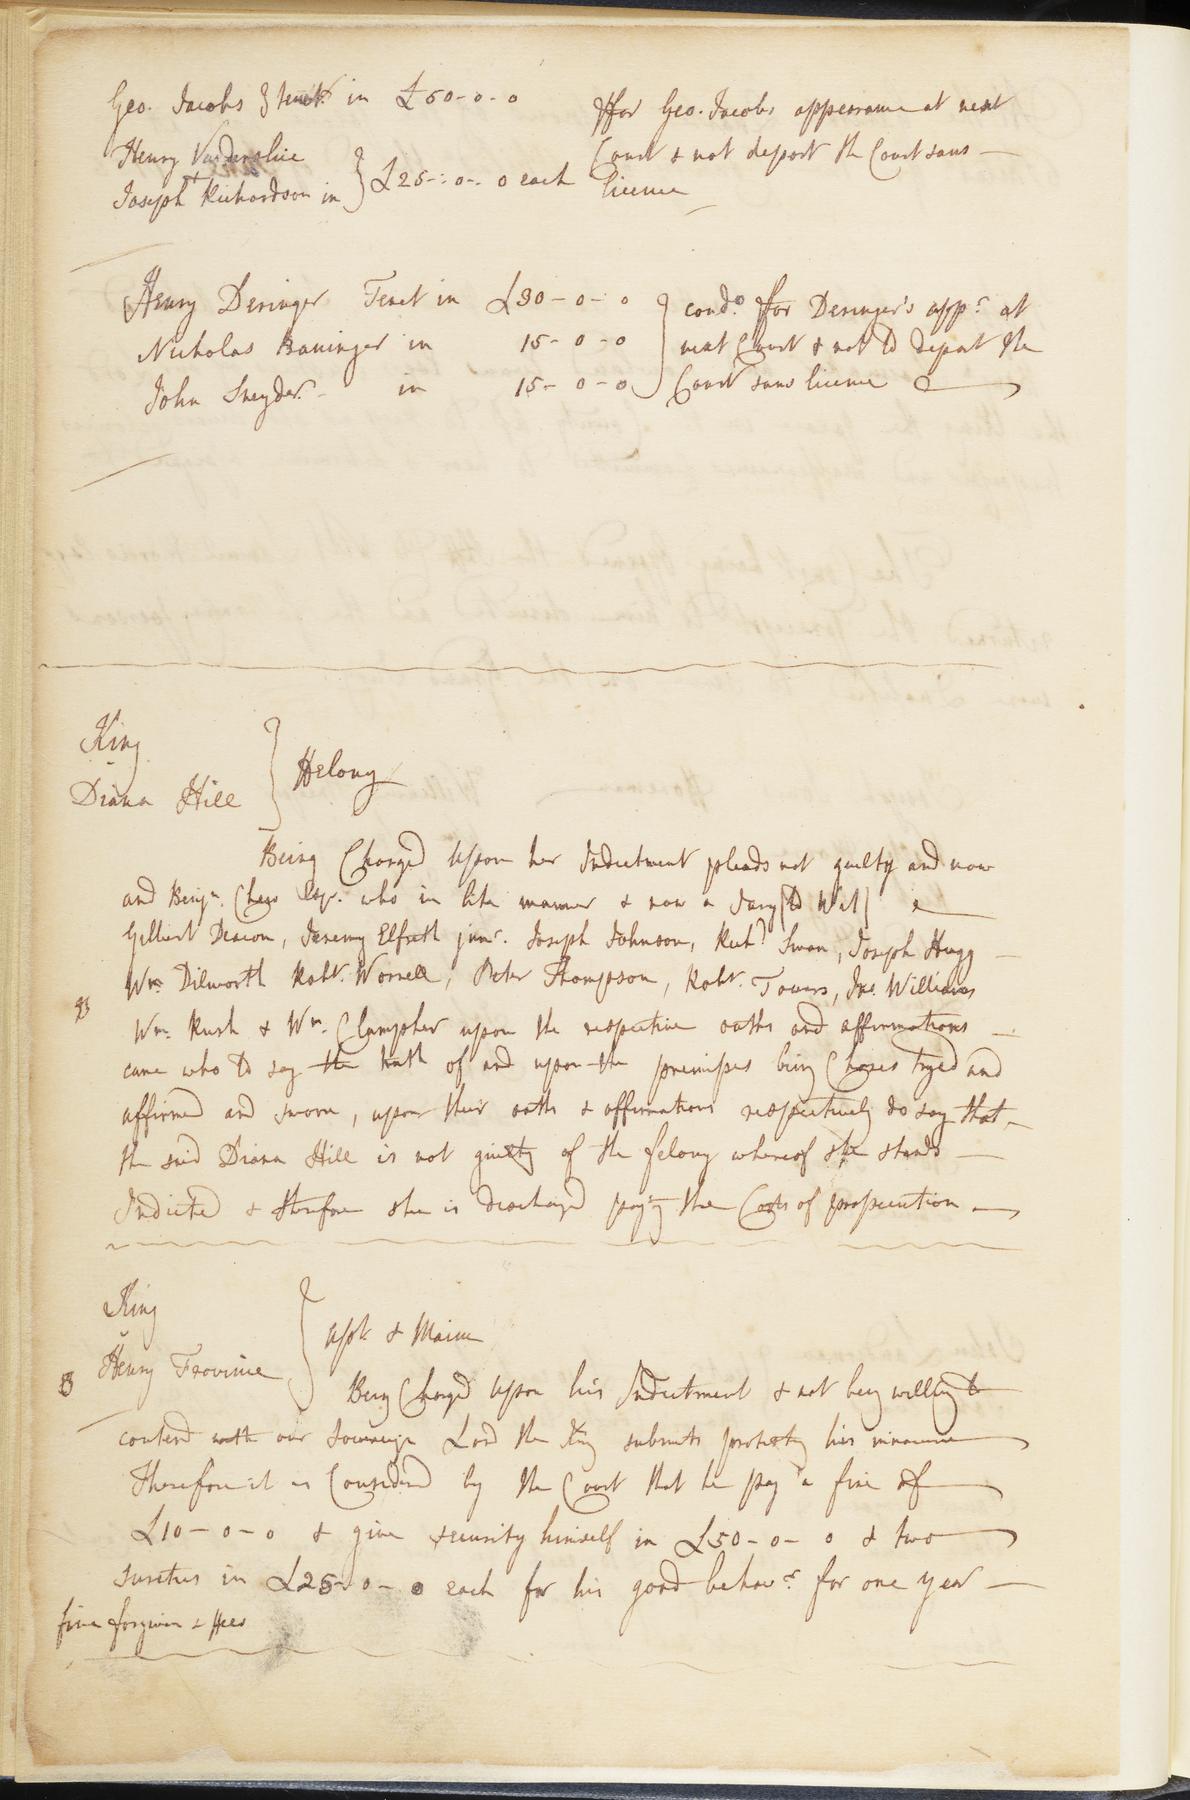 Geo. Jacobs } tenet. in £50-0-0
ffor Geo. Jacobs appearance at next
Court & not depart the Court sans
licence
Henry Vanderslice
Joseph Richardson in } £25-:0-.0 each
Henry Deringer Tenet in £30-0-0
Nicholas Baninger in 15-0-0
John Sneyder. in 15-0-0
cond.o ffor Deringer's app.r at
next Court & not to depart the
Court sans licence
King
v
Diana Hill } ffelony
Being Charged upon her Indictment pleads not guilty and now
and Benj.n Chew Esqr. who in like manner & now a Jury [to Wit]
Gilbert Deacon, Jeremy Elfreth junr. Joseph Johnson, Richd. Swan, Joseph Hugg
Wm. Dilworth Robt. Worrell, Peter Thompson, Robt. Towers, Jno. Williams
Wm. Rush & Wm. Clampher upon the respective oaths and affirmations
came who to say the truth of and upon the premisses being Choses tryed and
affirmed and sworn, upon their oaths & affirmations respectively do say that
the said Diana Hill is not guilty of the felony whereof she stands
Indicted & therefore she is discharged pay.g the Costs of prosecution
King
v
Henry Province } Ass't & Maim
Being Charged upon his Indictment & not being willing to
contend with our Sovereign Lord the King submits protesting his innocence
Therefore it is Considered by the Court that he pay a fine of
£10-0-0 & give security himself in £50-0-0 & two
sureties in £25-0-0 each for his good behav.r for one year
fine forgiven & ffees